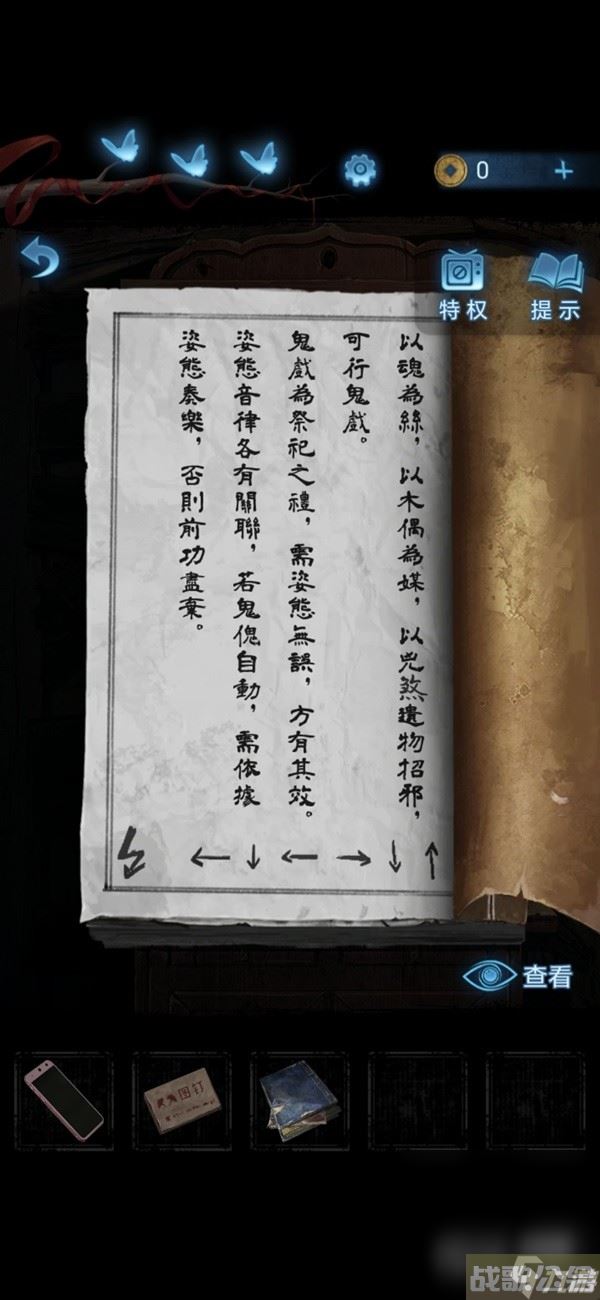 0
特权
提示
以魂為絲，以木偶為媒，以兇煞遺物招邪，
可行鬼戲。
鬼戲為祭祀之禮，需姿態無誤，方有其效。
姿態音律各有關聯，若鬼傀自動，需依據
姿態奏樂，否則前功盡棄。
←↓←→↓↑
查看
图钉
战歌